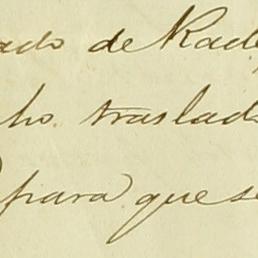 ado de Rade
ho traslad
para que se